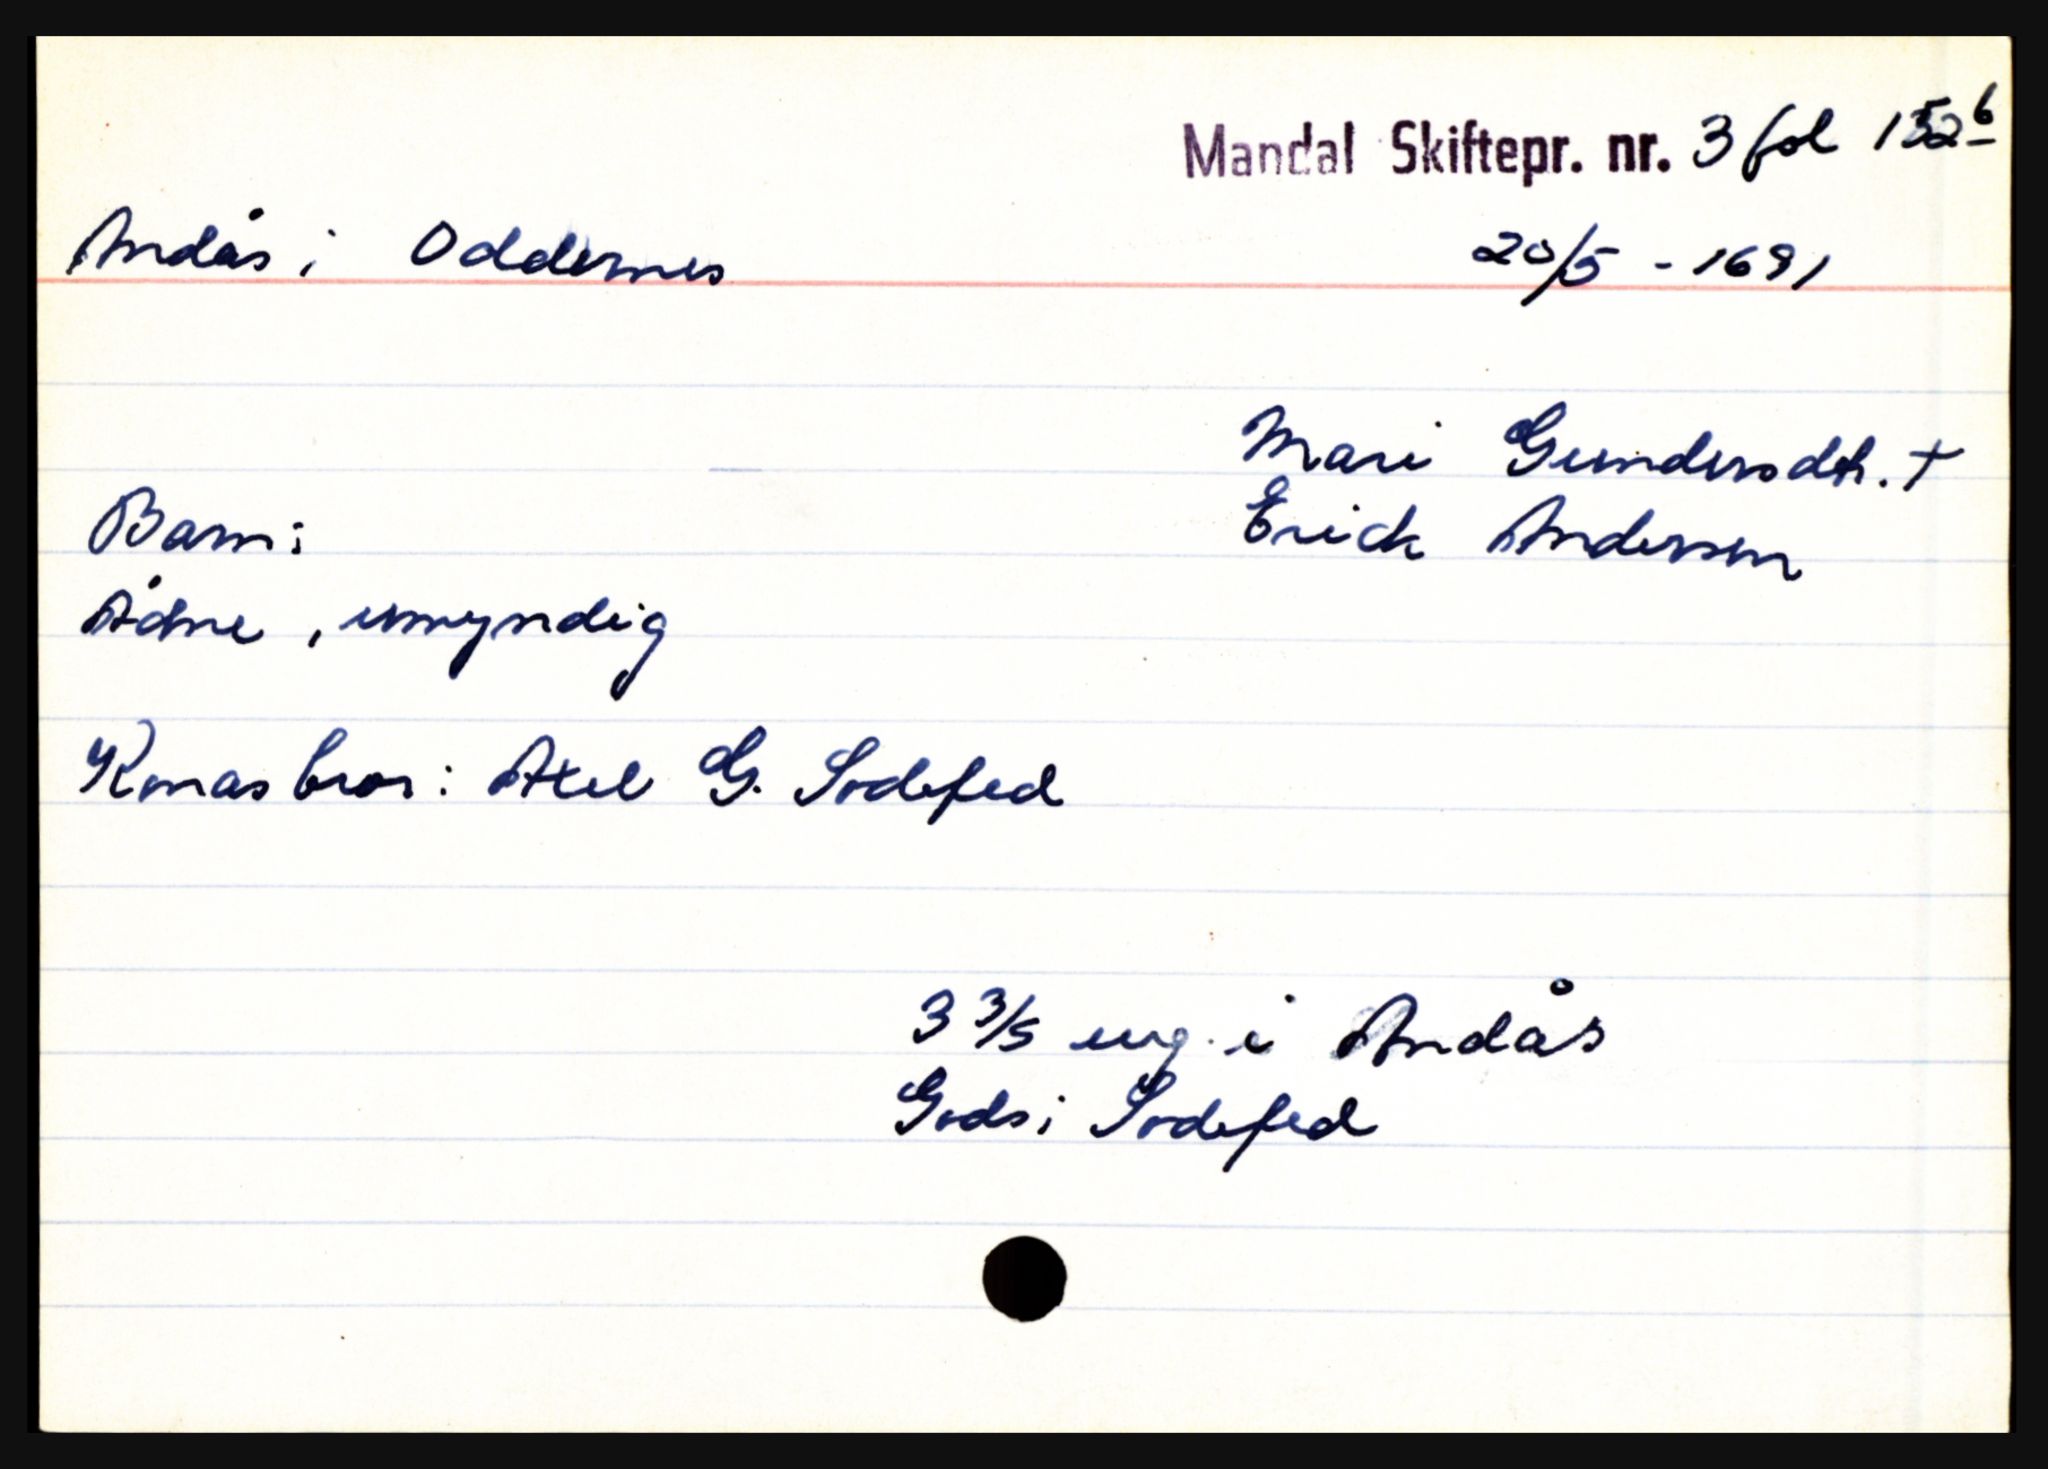 Mandal Skiftepr. nr. 3 fol 152b
Andås i Oddernes 20/5 - 1691
Mari Gundersdtr. †
Erick Andersen
Barn:
Ådne, umyndig
Konas bror: Axel G. Sodefed
3 3/5 eng. i Andås
Gods i Sodefed